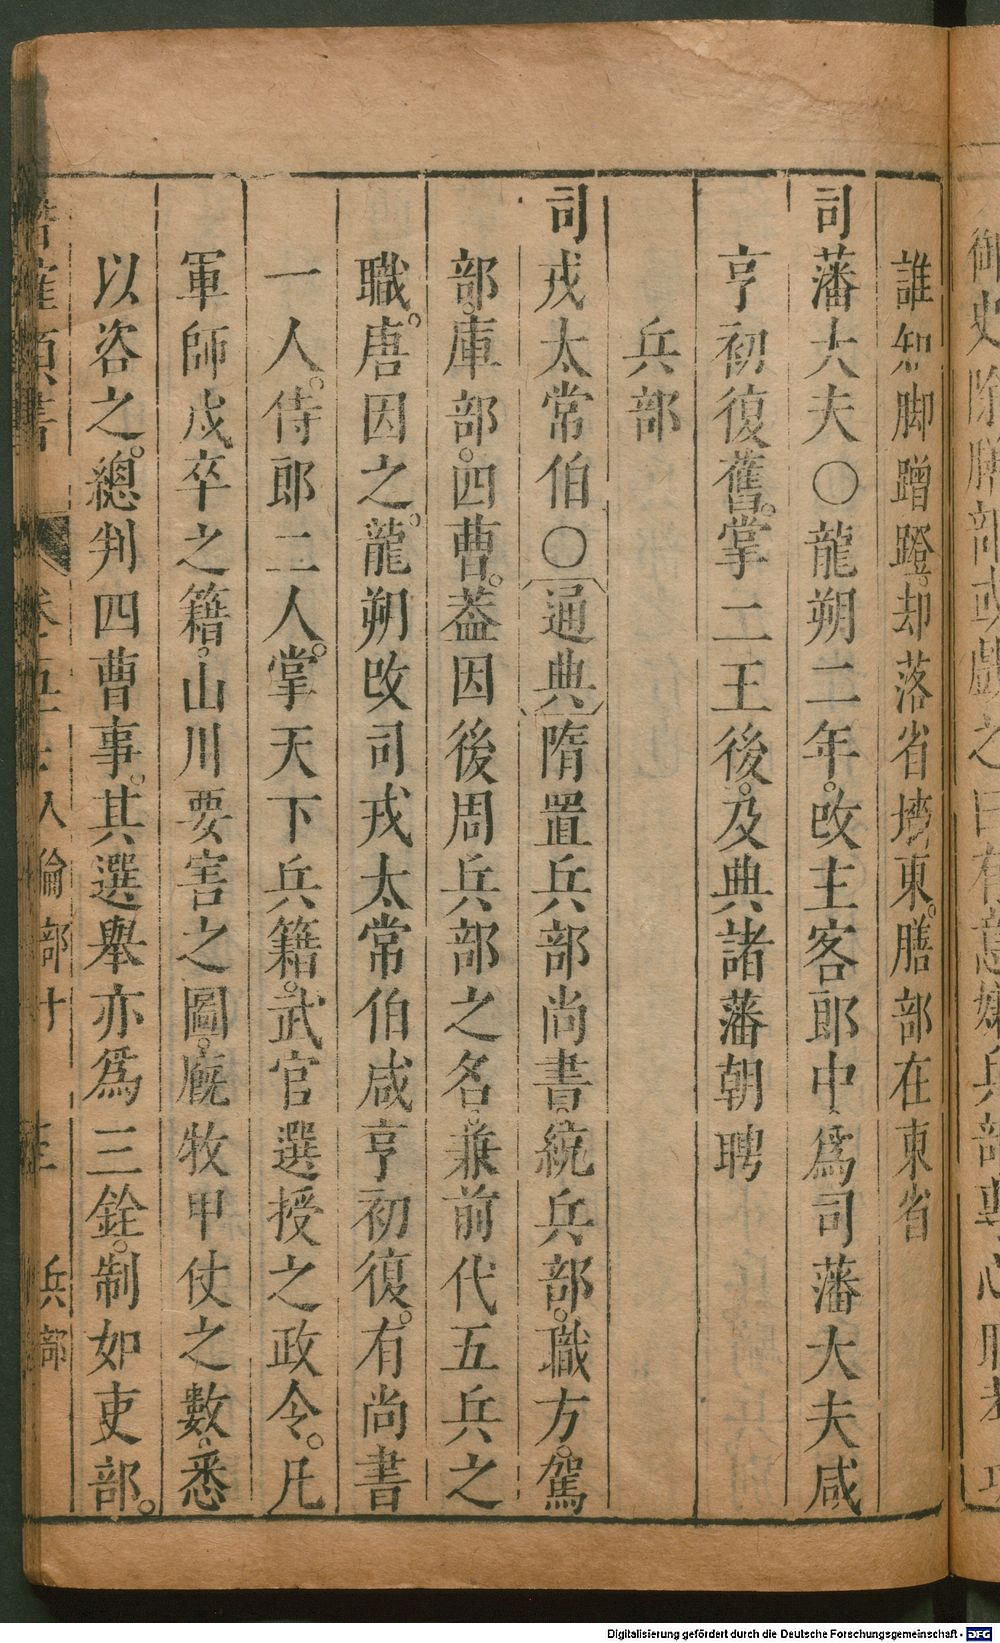 誰知脚蹭蹬。却落省墻東。膳部在東省
司藩大夫○龍朔二年。改主客郎中、爲司藩大夫咸
亨初復舊。掌二王後。及典諸藩朝聘
兵部
司戎太常伯○通典隋置兵部尚書。統兵部。職方。駕
部。庫部。四曹。葢因後周兵部之名。兼前代五兵之
職。唐因之。龍朔改司戎太常伯咸亨初復。有尚書
一人。侍郎二人。掌天下兵籍。武官選授之政令。凡
軍師戍卒之籍。山川要害之圖。廐牧甲仗之數。悉
以咨之。總判四曹事。其選舉亦爲三銓。制如吏部。
人倫部十
兵部
Digitalisierung gefördert durch die Deutsche Forschungsgemeinschaft - DFG